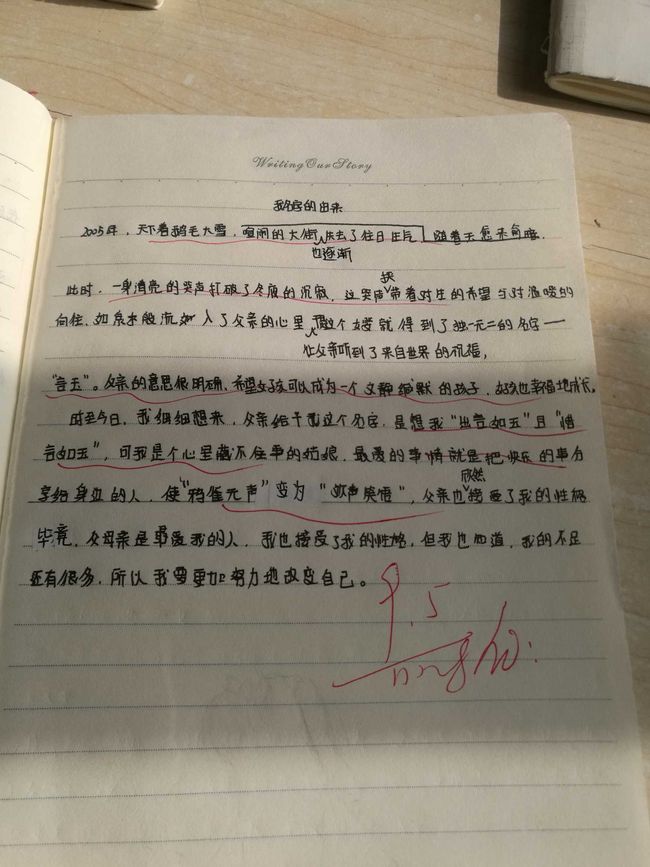 Writing Our Story
我名字的由来
2005年，天下着鹅毛大雪，喧闹的大街也逐渐失去了往日生气，随着天愈来愈暗，
此时，一身清亮的哭声打破了冬夜的沉寂，这哭声带着对生的希望与对温暖的
向往，如泉水般流入了父亲的心里，让父亲听到了来自世界的祝福，这个女孩就得到了独一无二的名字——
"言玉"。父亲的意思很明确，希望女孩可以成为一个文静缄默的孩子，好孩也幸福地成长。
时至今日，我细细想来，父亲给予我这个名字，是想我"出言如玉"且"惜
言如玉"，可我是个心里藏不住事的姑娘，最爱的事情就是把快乐的事分
享给身边的人，使"鸦雀无声"变为"欢声笑语"，父亲也欣然接受了我的性格
毕竟，父母亲是最爱我的人，我也接受了我的性格，但我也知道，我的不足
还有很多，所以我要更加努力地改变自己。
9.5